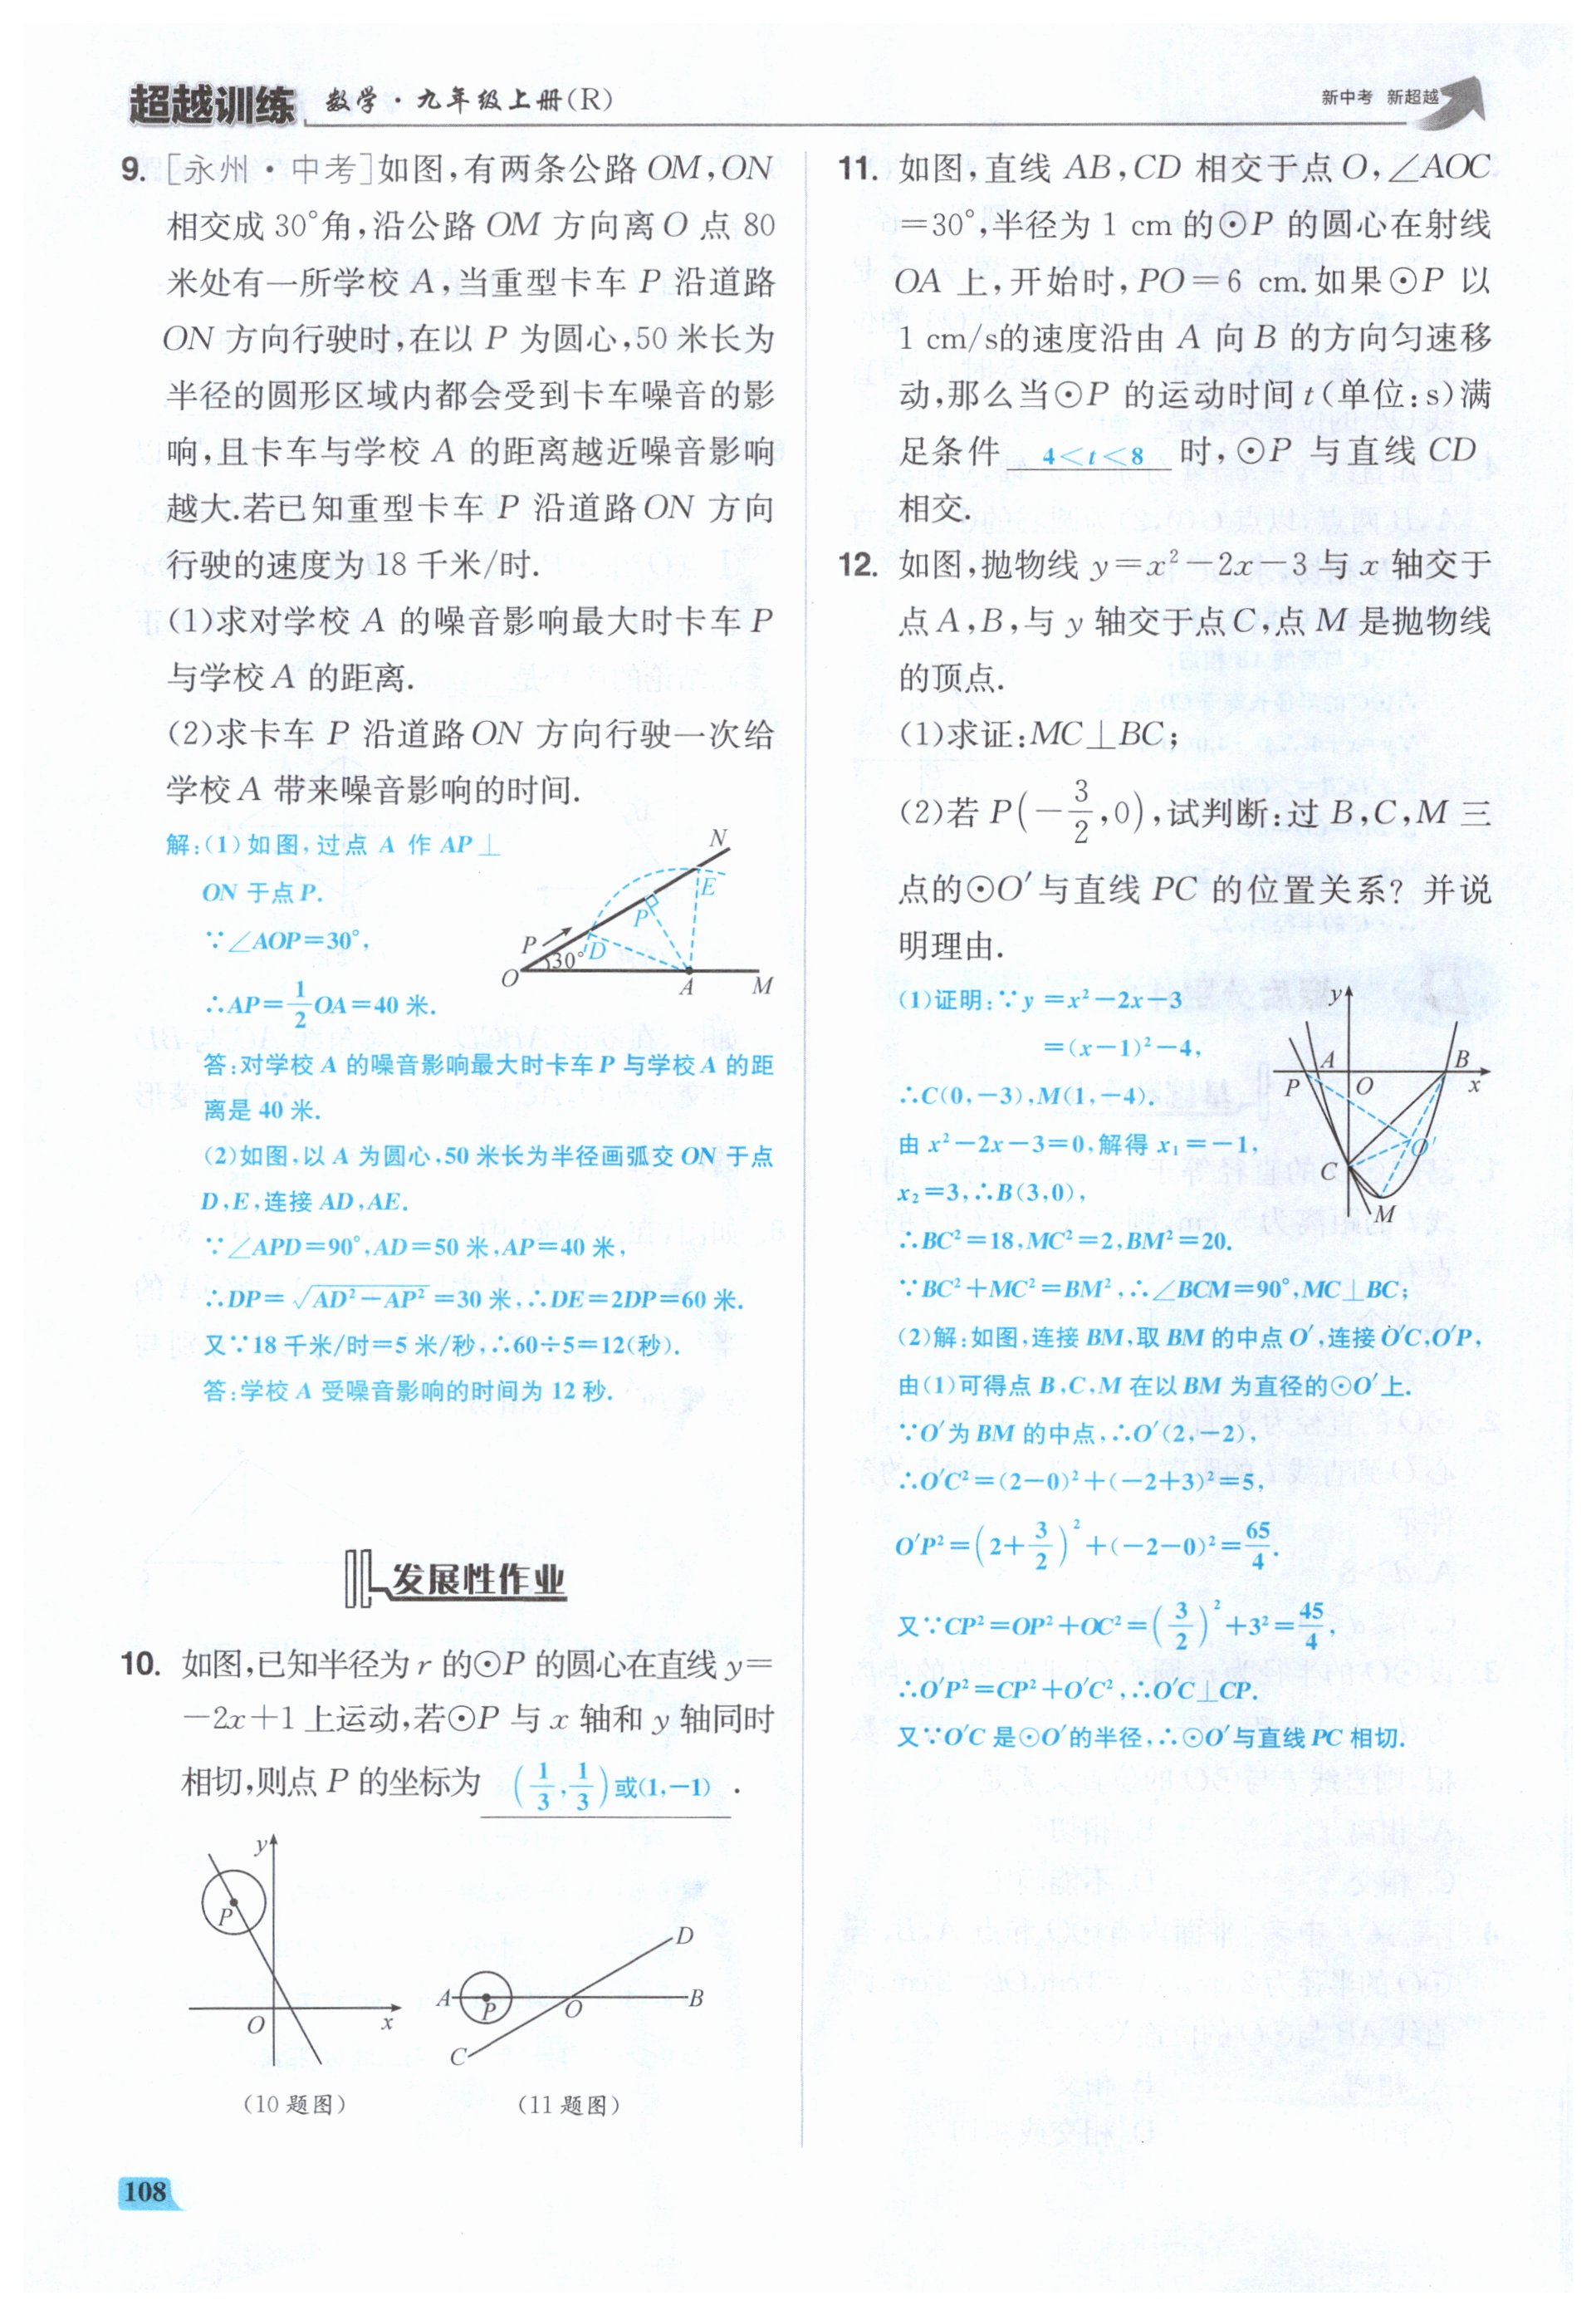 超越训练 数学·九年级上册(R)
新中考 新超越
9. [永州·中考]如图,有两条公路OM,ON
相交成30°角,沿公路OM方向离O点80
米处有一所学校A,当重型卡车P沿道路
ON方向行驶时,在以P为圆心,50米长为
半径的圆形区域内都会受到卡车噪音的影
响,且卡车与学校A的距离越近噪音影响
越大.若已知重型卡车P沿道路ON方向
行驶的速度为18千米/时.
(1)求对学校A的噪音影响最大时卡车P
与学校A的距离.
(2)求卡车P沿道路ON方向行驶一次给
学校A带来噪音影响的时间.
解:(1)如图,过点A作AP⊥
ON于点P.
∵∠AOP=30°,
∴AP=1/2OA=40米.
N
E
P
D
P
30°
O
A
M
答:对学校A的噪音影响最大时卡车P与学校A的距
离是40米.
(2)如图,以A为圆心,50米长为半径画弧交ON于点
D,E,连接AD,AE.
∵∠APD=90°,AD=50米,AP=40米,
∴DP=√(AD²-AP²)=30米,∴DE=2DP=60米.
又∵18千米/时=5米/秒,∴60÷5=12(秒).
答:学校A受噪音影响的时间为12秒.
发展性作业
10. 如图,已知半径为r的⊙P的圆心在直线y=
-2x+1上运动,若⊙P与x轴和y轴同时
相切,则点P的坐标为 (1/3,1/3)或(1,-1) .
y
P
O
x
(10题图)
A
P
O
B
D
C
(11题图)
11. 如图,直线AB,CD相交于点O,∠AOC
=30°,半径为1 cm的⊙P的圆心在射线
OA上,开始时,PO=6 cm.如果⊙P以
1 cm/s的速度沿由A向B的方向匀速移
动,那么当⊙P的运动时间t(单位:s)满
足条件 4<t<8 时,⊙P与直线CD
相交.
12. 如图,抛物线y=x²-2x-3与x轴交于
点A,B,与y轴交于点C,点M是抛物线
的顶点.
(1)求证:MC⊥BC;
(2)若P(-3/2,0),试判断:过B,C,M三
点的⊙O′与直线PC的位置关系?并说
明理由.
(1)证明:∵y=x²-2x-3
=(x-1)²-4,
∴C(0,-3),M(1,-4).
由x²-2x-3=0,解得x₁=-1,
x₂=3,∴B(3,0),
∴BC²=18,MC²=2,BM²=20.
y
A
B
P
O
x
O′
C
M
∵BC²+MC²=BM²,∴∠BCM=90°,MC⊥BC;
(2)解:如图,连接BM,取BM的中点O′,连接O′C,O′P,
由(1)可得点B,C,M在以BM为直径的⊙O′上.
∵O′为BM的中点,∴O′(2,-2),
∴O′C²=(2-0)²+(-2+3)²=5,
O′P²=(2+3/2)²+(-2-0)²=65/4.
又∵CP²=OP²+OC²=(3/2)²+3²=45/4,
∴O′P²=CP²+O′C²,∴O′C⊥CP.
又∵O′C是⊙O′的半径,∴⊙O′与直线PC相切.
108